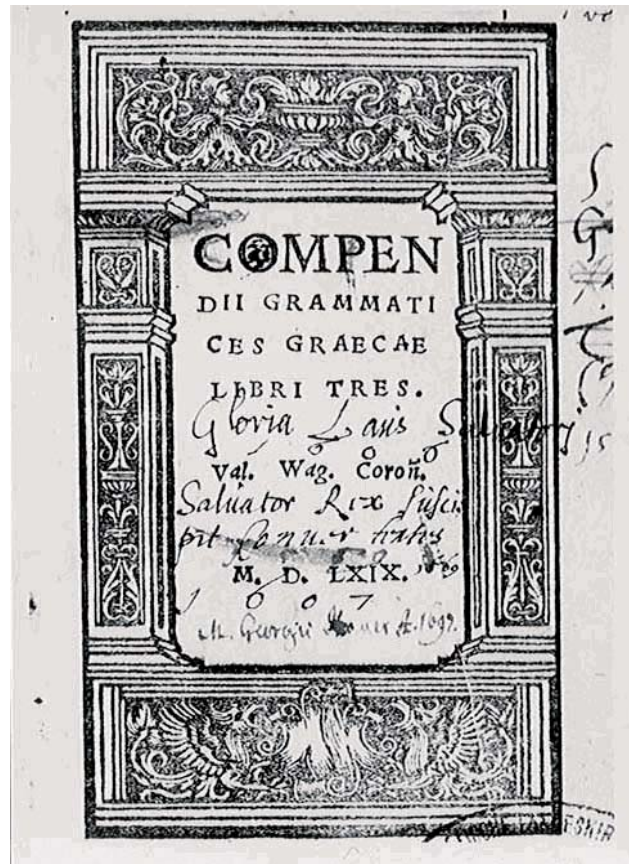 COMPEN
DII GRAMMATI
CES GRAECAE
LIBRI TRES.
Gloria Laus Salvatori
Val. Wag. Coroñ.
Salvator Rex susci
pit
M. D. LXIX. 1569
1 6 0 7
M. Georgii A. 1697.